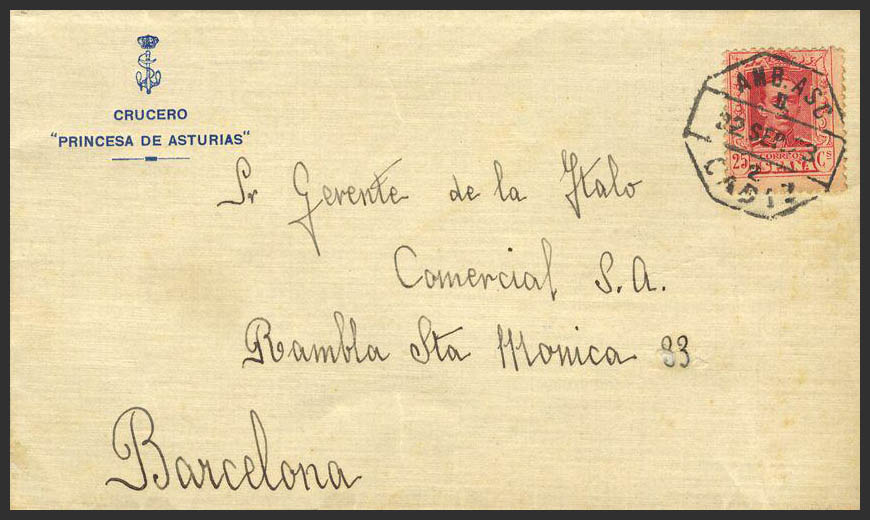 CRUCERO
"PRINCESA DE ASTURIAS"
AMB. ASC
CADIZ
25 CORREOS Cs
Sr Gerente de la Italo
Comercial S.A.
Rambla Sta Monica 33
Barcelona